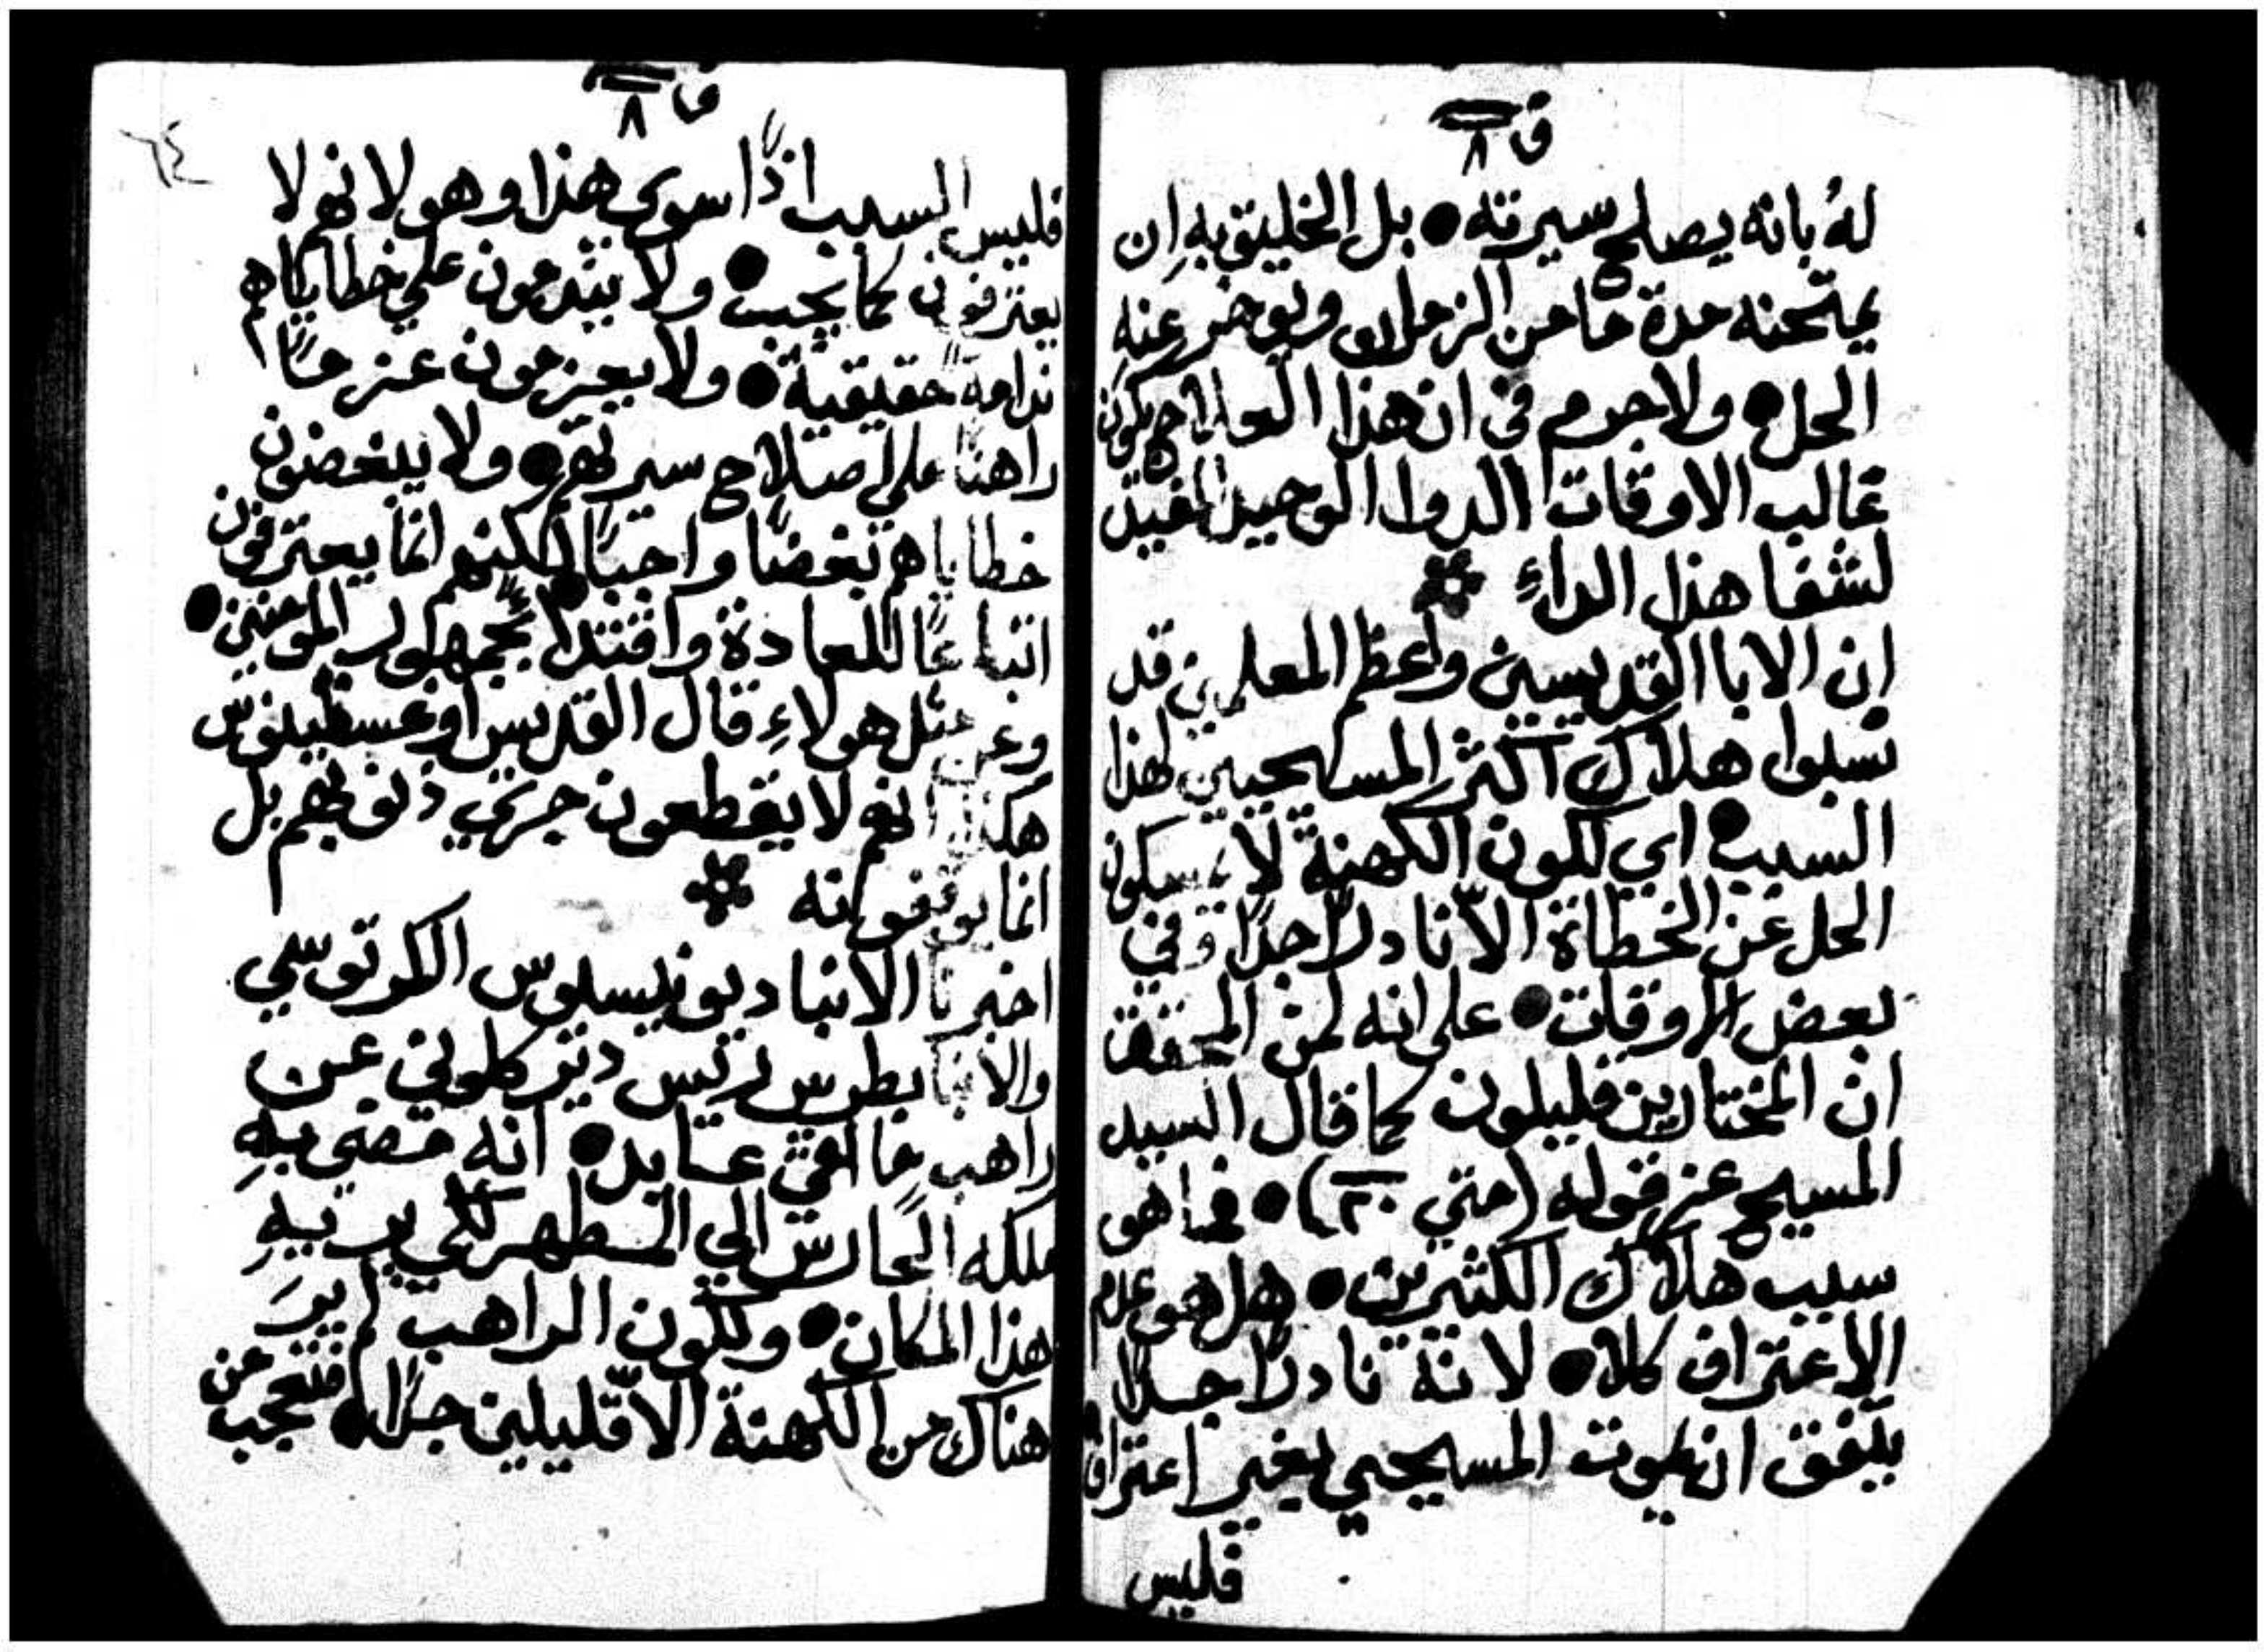 ق ٨
لهُ بانه يصلح سيرته ● بل الخليق بهِ ان
يمتحنه مدة ما من الزمان ويوخر عنه
الحل ● ولا جرم في ان هذا العلاج يكون
غالب الاوقات الدوا الوحيد المفيد
لشفا هذا الداءِ
ان الابا القديسين واعظم المعلمين قد
نسبوا هلاك اكثر المسيحيين لهذا
السبب ● اي لكون الكهنة لا يمسكون
الحل عن الخطاة الّا نادرًا جدًا وفي
بعض الاوقات ● على انه لمن المحقق
ان المختارين قليلون كما قال السيد
المسيح عز قوله (متي ٢٠) ● فما هو
سبب هلاك الكثيرين ● هل هو عدم
الاعتراف كلا ● لانه نادرًا جدًا
يتفق ان يموت المسيحي بغير اعتراف
فليس
ق ٨
٦٤
فليس السبب اذًا سوي هذا وهو لانهم لا
يعترفون كما يجب ● ولا يندمون علي خطاياهم
ندامةً حقيقيةً ● ولا يعزمون عزمًا
راهنًا علي اصلاح سيرتهم ● ولا يبغضون
خطاياهم بغضًا واجبًا ● لكنهم انما يعترفون
اتباعًا للعادة واقتداءً بجمهور المومنين ●
وعن مثل هولاءِ قال القديس اوغسطينوس
هكذا انهم لا يقطعون جري ذنوبهم بل
انما يوقفونه
اخبرنا الانبا ديونيسيوس الكرتوسي
والانبا بطرس رئيس دير كلوني عن
راهب ما افي عابد ● انه مضي بهِ
ملكه الحارس الي المطهر لكي يريهِ
هذا المكان ● ولكون الراهب لم يرَ
هناك من الكهنة الّا قليلين جدًا ● فتعجب من